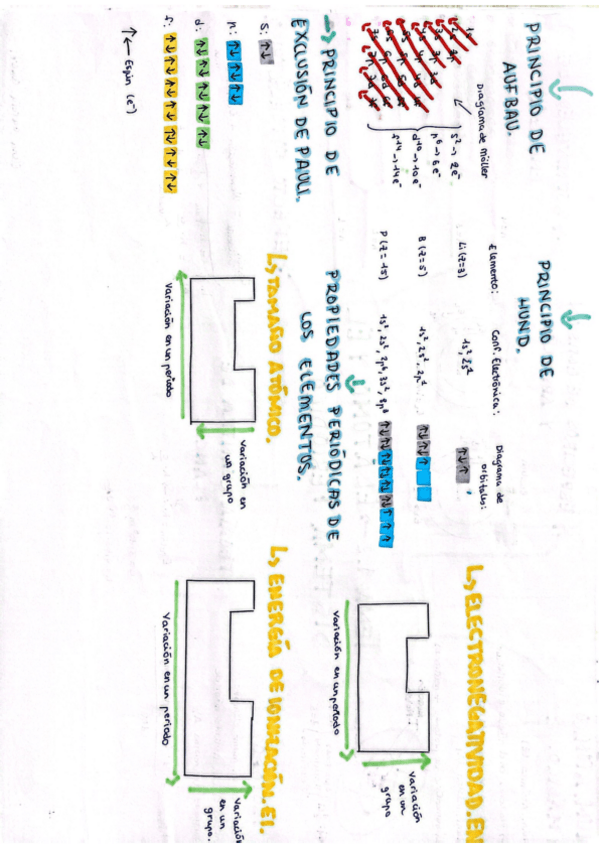 PRINCIPIO DE
AUFBAU.
1s
2s 2p
3s 3p 3d
Diagrama de möller
s² → 2e⁻
p⁶ → 6e⁻
d¹⁰ → 10e⁻
f¹⁴ → 14e⁻
→ PRINCIPIO DE
EXCLUSIÓN DE PAULI.
s: ↑↓
p: ↑↓ ↑↓ ↑↓
d: ↑↓ ↑↓ ↑↓ ↑↓ ↑↓
f: ↑↓ ↑↓ ↑↓ ↑↓ ↑↓ ↑↓ ↑↓
↑ ← Espín (e⁻)
PRINCIPIO DE
HUND.
Elemento: Conf. Electrónica: Diagrama de orbitales:
Li (z=3) 1s², 2s² ↑↓ ↑
B (z=5) 1s², 2s², ↑↓ ↑↓ ↑
P (z=15) 1s², 2s², 2p⁶, 3s², ↑↓ ↑↓ ↑↓ ↑↓ ↑↓ ↑↓ ↑ ↑ ↑
PROPIEDADES PERIÓDICAS DE
LOS ELEMENTOS.
↳ TAMAÑO ATÓMICO.
Variación en
un grupo
Variación en un periodo
↳ ELECTRONEGATIVIDAD. EN
Variación
en un
grupo
Variación en un periodo
↳ ENERGÍA DE IONIZACIÓN. EI.
Variación
en un
grupo.
Variación en un periodo